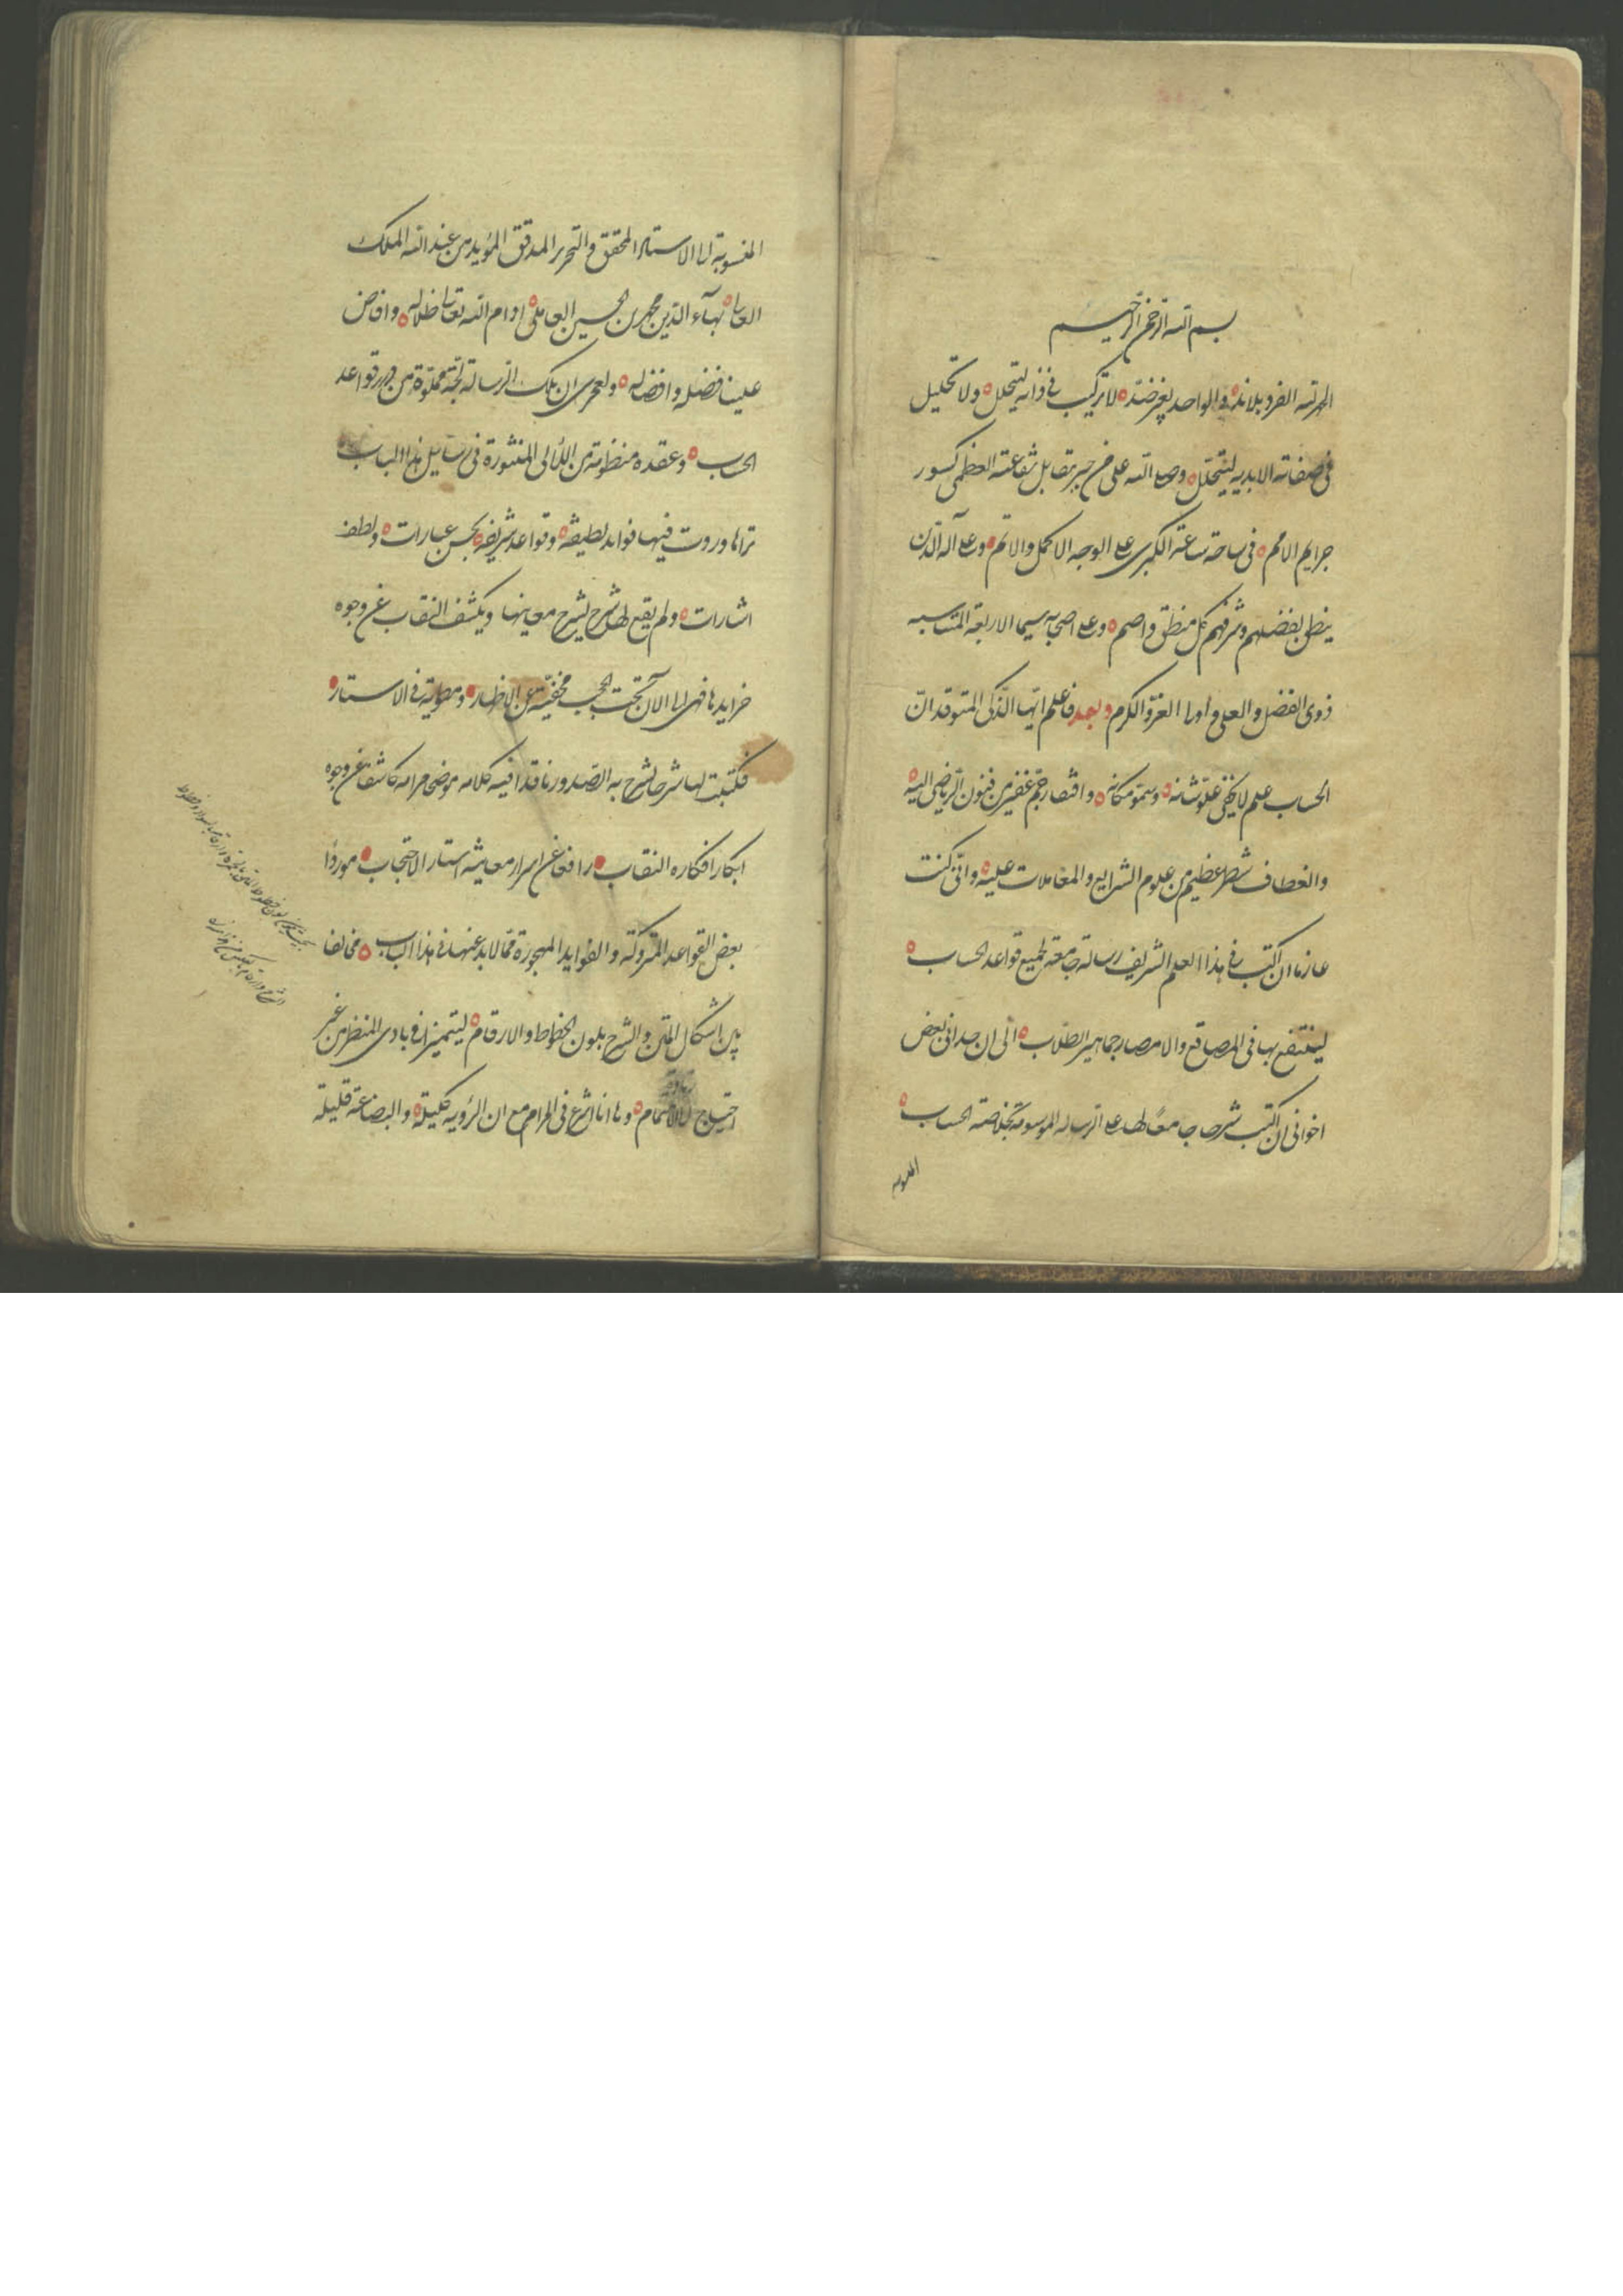 بسم الله الرحمن الرحيم
الحمد لله الفرد بلا ند والواحد بغير ضد لا تركيب في ذاته ليتحلل ولا تحليل
في صفاته الابديه ليتخلل وصلى الله على من جبر بتقابل شفاعته العظمى كسور
جرايم الامم في ساحة ساعة الكبرى على الوجه الاكمل والاتم وعلى آله الذين
ينطق بفضلهم وشرفهم كل منطق واصم وعلى اصحابه سيما الاربعة المتناسبه
ذوى الفضل والعلى واولى العزة والكرم وبعد فاعلم ايّها الذّكى المتوقد انّ
الحساب علم لا يخفى علوّ شانه وسموّ مكانه وافتقار جمّ غفير من فنون الرّياضى اليه
وانعطاف شطر عظيم من علوم الشرايع والمعاملات عليه وانّى كنت
عازما ان اكتب في هذا العلم الشريف رسالة جامعة لجميع قواعد الحساب
لينتفع بها في المصاقع والامصار جماهير الطلّاب الى ان حدانى بعض
اخوانى ان اكتب شرحا جامعًا لها على الرساله الموسومة بخلاصة الحساب
المنسوبة
المنسوبة الى الاستاد المحقق والنحرير المدقق المؤيد من عند الله الملك
العالى بهآء الدّين محمد بن الحسين العاملى ادام الله تعالى ظلاله وافاض
علينا فضله وافضاله ولعمرى ان تلك الرسالة لجّة مملوّة من درر قواعد
الحساب وعقدة منظومة من اللآلى المنثورة في رسايل هذا الباب
تراها وروت فيها فوايد لطيفة وقواعد شريفة بحسن عبارات ولطف
اشارات ولم يقع لها شرح يشرح معاينها ويكشف النقاب عن وجوه
خرايدها فهى الى الآن تحت الحجب مخفيّة عن الاظهار ومطويّة في الاستار
فكتبت لها شرحا يشرح به الصّدور ناقدا فيه كلامه موضحا مرامه كاشفا عن وجوه
ابكار افكاره النقاب رافعا عن اسرار معانيه استار الاحتجاب موردًا
بعض القواعد المتروكة والفوايد المهجورة ممّا لابد عنها في هذا الباب مخالفا
بين اشكال المتن والشرح بلون الخطوط والارقام ليتميزا في بادى المنظر من غير
احتياج الى الاتمام وها انا اشرع فى المرام مع ان الرؤيه كليلة والبضاعة قليلة